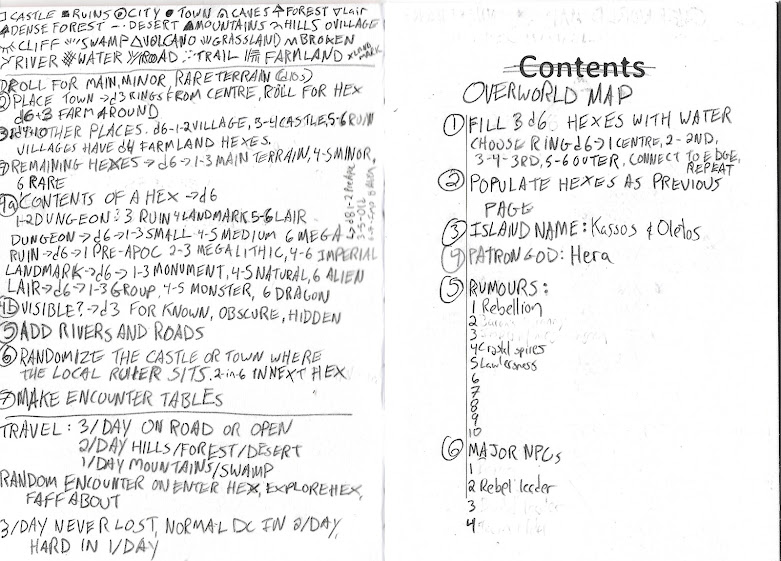 CASTLE RUINS CITY TOWN CAVES FOREST LAIR
DENSE FOREST DESERT MOUNTAINS HILLS VILLAGE
CLIFF SWAMP VOLCANO GRASSLAND BROKEN
RIVER WATER ROAD TRAIL FARMLAND LAND MARK
① ROLL FOR MAIN, MINOR, RARE TERRAIN (d10s)
② PLACE TOWN → d3 RINGS FROM CENTRE, ROLL FOR HEX
d6+3 FARM AROUND
OTHER PLACES. d6-1-2 VILLAGE, 3-4 CASTLE, 5-6 RUIN
VILLAGES HAVE d4 FARMLAND HEXES.
REMAINING HEXES → d6 → 1-3 MAIN TERRAIN, 4-5 MINOR,
6 RARE
4a CONTENTS OF A HEX → d6
1-2 DUNGEON: 3 RUIN 4 LANDMARK 5-6 LAIR
DUNGEON → d6 → 1-3 SMALL 4-5 MEDIUM 6 MEGA
RUIN → d6 → 1 PRE-APOC 2-3 MEGALITHIC, 4-6 IMPERIAL
LANDMARK → d6 → 1-3 MONUMENT, 4-5 NATURAL, 6 ALIEN
LAIR → d6 → 1-3 GROUP, 4-5 MONSTER, 6 DRAGON
4b VISIBLE? → d3 FOR KNOWN, OBSCURE, HIDDEN
⑤ ADD RIVERS AND ROADS
⑥ RANDOMIZE THE CASTLE OR TOWN WHERE
THE LOCAL RULER SITS. 2-in-6 IN NEXT HEX
⑦ MAKE ENCOUNTER TABLES
TRAVEL: 3/DAY ON ROAD OR OPEN
2/DAY HILLS/FOREST/DESERT
1/DAY MOUNTAINS/SWAMP
RANDOM ENCOUNTER ON ENTER HEX, EXPLORE HEX,
FAFF ABOUT
3/DAY NEVER LOST, NORMAL DC IN 2/DAY,
HARD IN 1/DAY
Contents
OVERWORLD MAP
① FILL 3d6 HEXES WITH WATER
CHOOSE RING d6 → 1 CENTRE, 2-2ND,
3-4-3RD, 5-6 OUTER, CONNECT TO EDGE,
REPEAT
② POPULATE HEXES AS PREVIOUS
PAGE
③ ISLAND NAME: Kassos & Oletos
④ PATRON GOD: Hera
⑤ RUMOURS:
1 Rebellion
2
3
4 Crystal spires
5 Lawlessness
6
7
8
9
10
⑥ MAJOR NPCS
1
2 Rebel leader
3
4